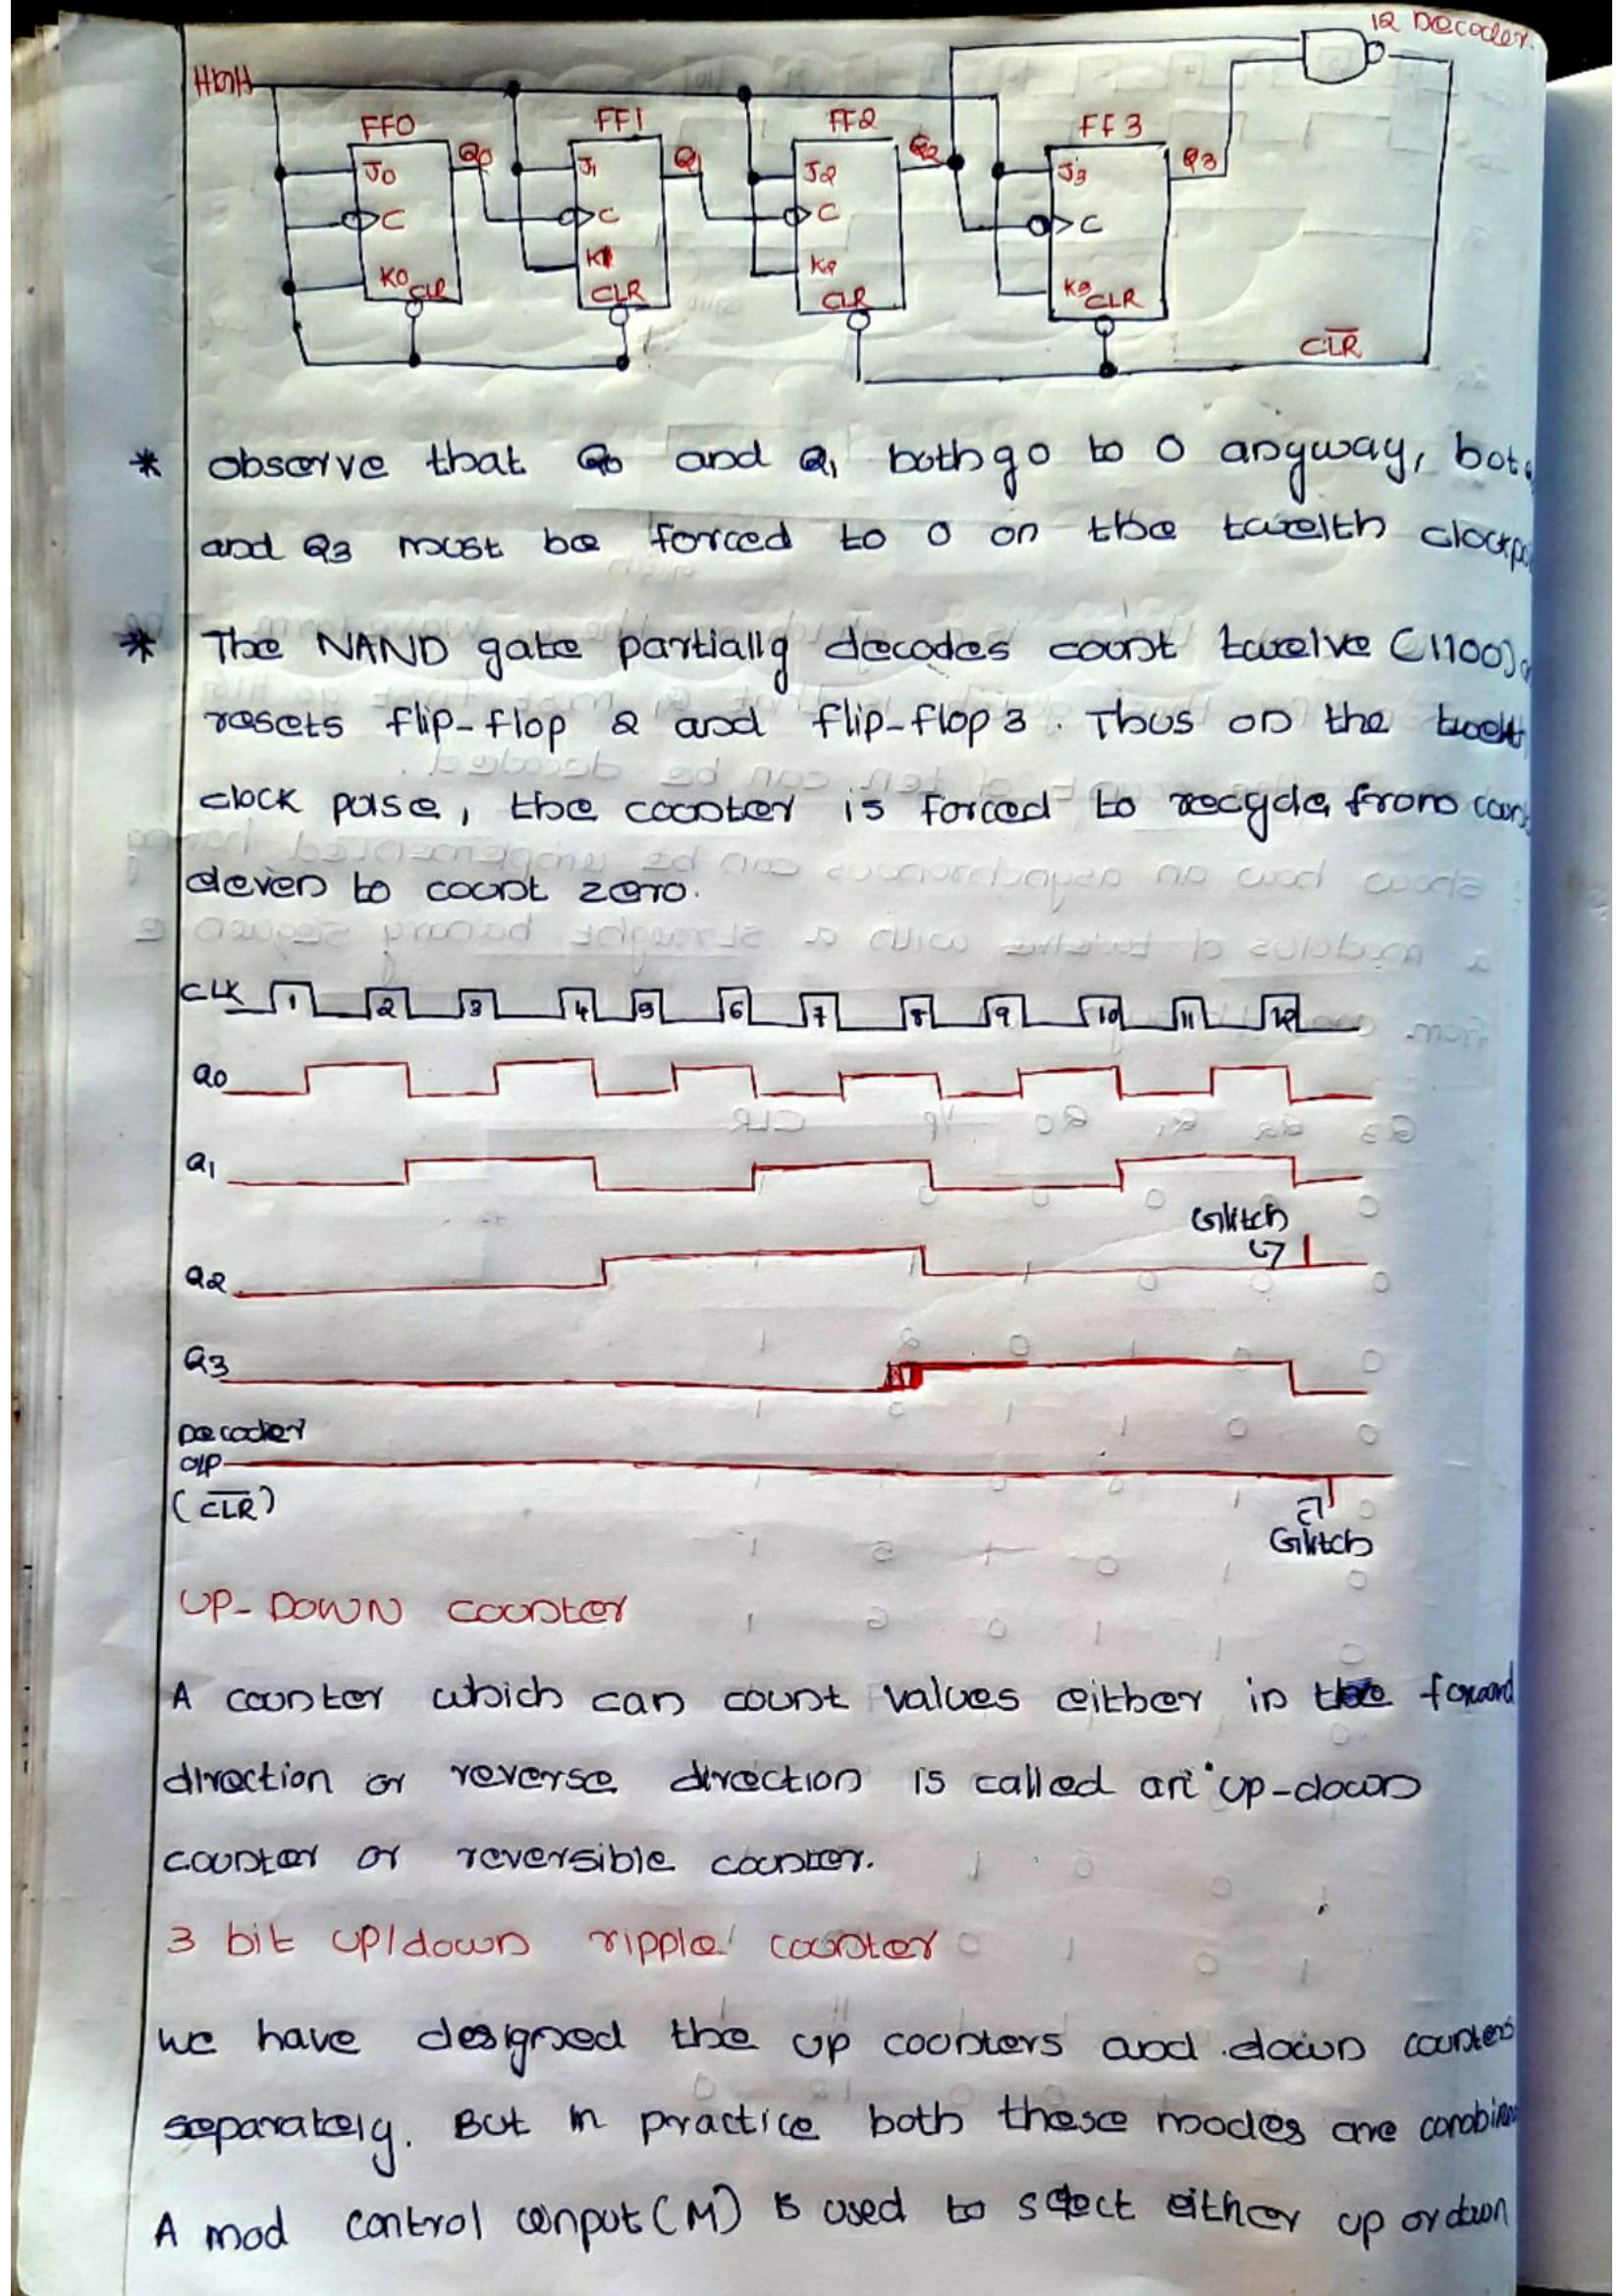 12 Decoder.
HIGH
FF0 FF1 FF2 FF3
J0 Q0 J1 Q1 J2 Q2 J3 Q3
C C C C
K0 K1 K2 K3
CLR CLR CLR CLR
C̅L̅R̅
* observe that Q0 and Q1 both go to 0 anyway,
and Q3 must be forced to 0 on the twelth
* The NAND gate partially decodes count twelve (1100)
resets flip-flop 2 and flip-flop 3. Thus on the
clock pulse, the counter is forced to recycle from
eleven to count zero.
CLK 1 2 3 4 5 6 7 8 9 10 11 12
Q0
Q1
Glitch
Q2
Q3
Decoder
O/P
(C̅L̅R̅)
Glitch
UP-DOWN counter
A counter which can count values either in the forward
direction or reverse direction is called an up-down
counter or reversible counter.
3 bit up/down ripple counter
we have designed the up counters and down counters
separately. But in practice both these modes are
A mod control (M) is used to select either up or down